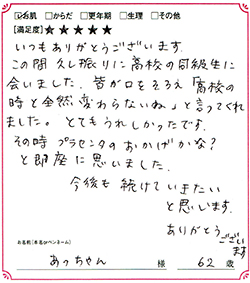 ☑お肌 □からだ □更年期 □生理 □その他
[満足度]★★★★★
いつもありがとうございます。
この間 久し振りに高校の同級生に
会いました。皆が口をそろえ「高校の
時と全然変わらないね。」と言ってくれ
ました。とてもうれしかったです。
その時プラセンタのおかげかな?
と即座に思いました。
今後も続けていきたい
と思います。
ありがとうございます
お名前(本名orペンネーム)
あっちゃん 様 62 歳